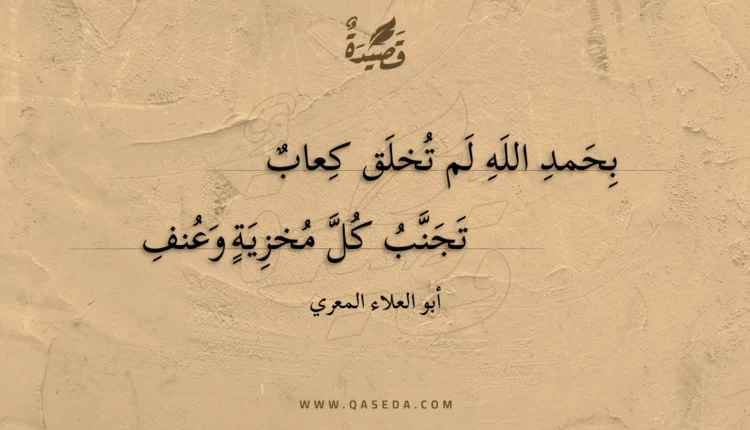 قَصِيدَةٌ
بِحَمدِ اللَهِ لَم تُخلَق كِعابٌ
تَجَنَّبُ كُلَّ مُخزِيَةٍ وَعُنفِ
أبو العلاء المعري
WWW.QASEDA.COM